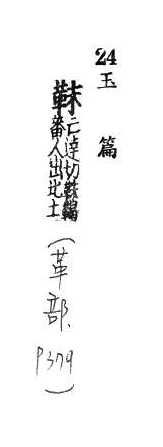 24
玉篇
靺
亡達切靺鞨
番人出北土
(革部. P379)